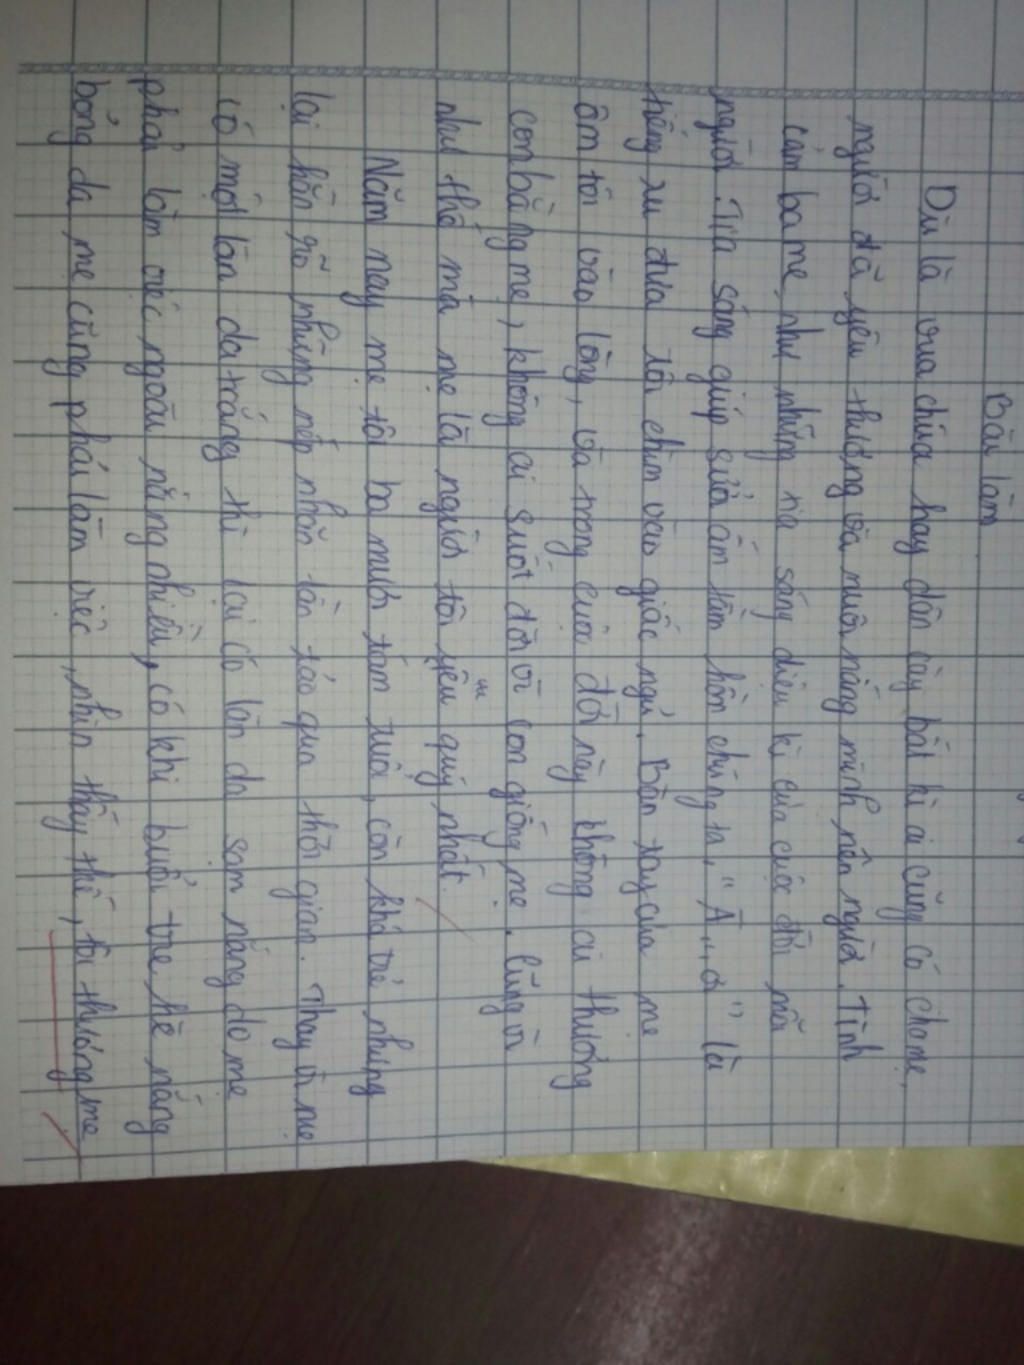 Bài làm
Dù là vua chúa hay dân cày bất kì ai cũng có cha mẹ,
người đã yêu thương và nuôi nấng mình nên người. Tình
cảm ba mẹ, như những tia sáng diệu kì của cuộc đời mỗi
người. Tia sáng giúp sưởi ấm tâm hồn chúng ta, " À ,, ơi " là
tiếng ru đưa tôi chìm vào giấc ngủ. Bàn tay của mẹ
ôm tôi vào lòng, và trong cuộc đời này không ai thương
con bằng mẹ, không ai suốt đời vì con giống mẹ. Cũng vì
như thế mà mẹ là người tôi yêu quý nhất.
Năm nay mẹ tôi ba mươi tám tuổi, còn khá trẻ nhưng
lại hằn rõ những nếp nhăn tần tảo qua thời gian. Thay vì mẹ
có một làn da trắng thì lại có làn da sạm nắng do mẹ
phải làm việc ngoài nắng nhiều, có khi buổi trưa hè nắng
bỏng da mẹ cũng phải làm việc, nhìn thấy thế, tôi thương mẹ